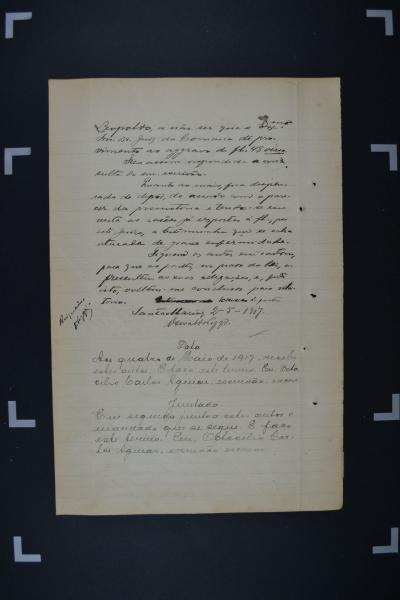 Leopoldo, a não ser que o Exmo.
Snr. Dr. Juiz da Comarca dê pro-
vimento ao aggravo de fl. 48 verso.
Fica assim respondida a con-
sulta do snr. escrivão.
Quanto ao mais, fica dispen-
sado de depôr, de accordo com o pare-
cer da promotoria e tendo em
vista as razões já expostas á fl., por
este juizo, a testeminha que se acha
atacada de grave enfermidade.
Fiquem os autos em cartorio,
para que as partes, no praso da lei, a-
presentem as suas allegações, e, feito
isto, voltem-me conclusos para
Santa Maria, 2-5-1917.
Data
Aos quatro de Maio de 1917, recebi
estes autos. E faço este termo. Eu, Octa-
cilio Carlos Aguiar, escrivão, escrevi
Juntada
Em seguida junto a estes autos o
mandado que se segue. E faço
este termo. Eu, Octacilio Car-
los Aguiar, escrivão escrevi